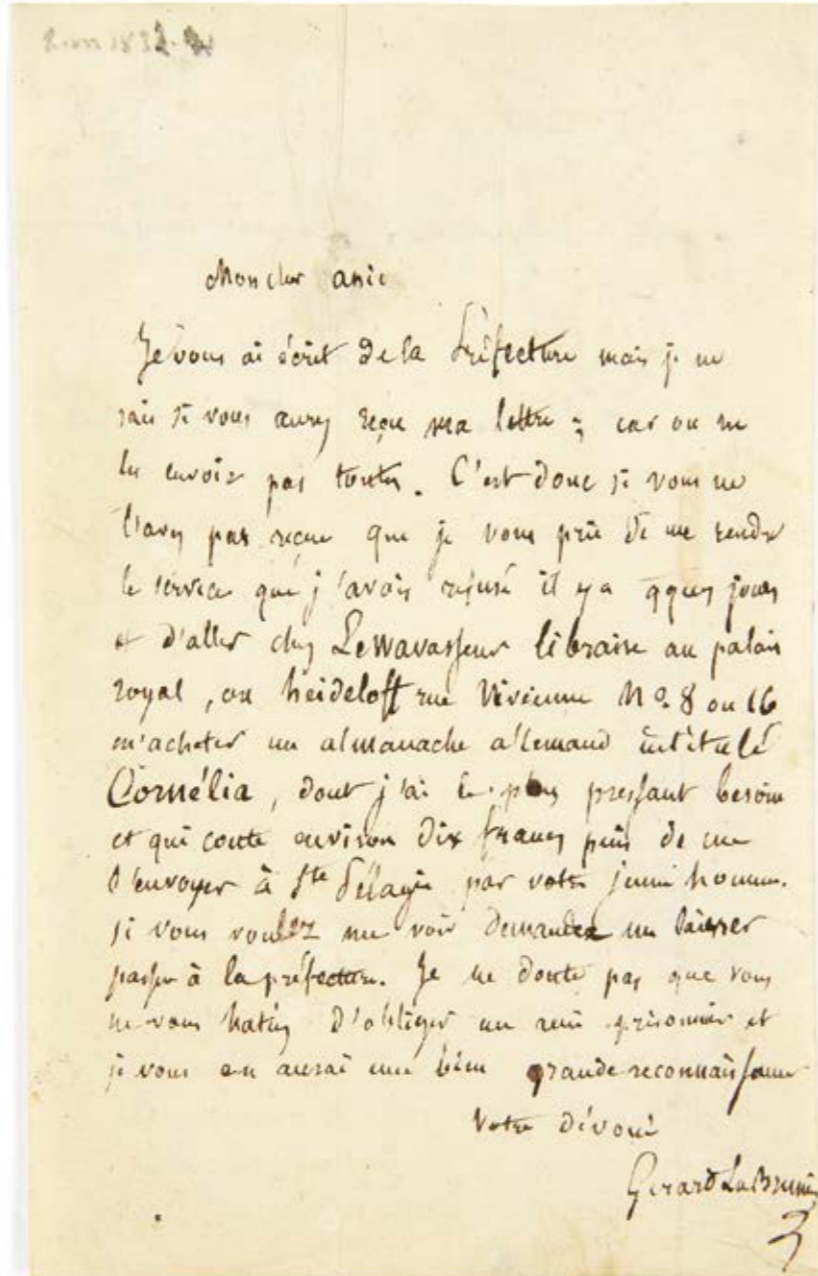 Mon cher ami
Je vous ai écrit de la Préfecture mais je ne
sais si vous aurez reçu ma lettre ; car on ne
les envoie pas toutes. C'est donc si vous ne
l'avez pas reçue que je vous prie de me rendre
le service que j'avois refusé il y a qques jours
et d'aller chez Lewavasseur libraire au palais
royal, ou heideloff rue Vivienne No. 8 ou 16
m'acheter un almanache allemand intitulé
Cornélia, dont j'ai le plus pressant besoin
et qui coute environ dix francs puis de me
l'envoyer à Ste Pélagie par votre jeune homme.
si vous voulez me voir demandez un laisser
passer à la préfecture. Je ne doute pas que vous
ne vous hatiez d'obliger un ami prisonnier et
je vous en aurai une bien grande reconnaissance
Votre dévoué
Gerard Labrunie